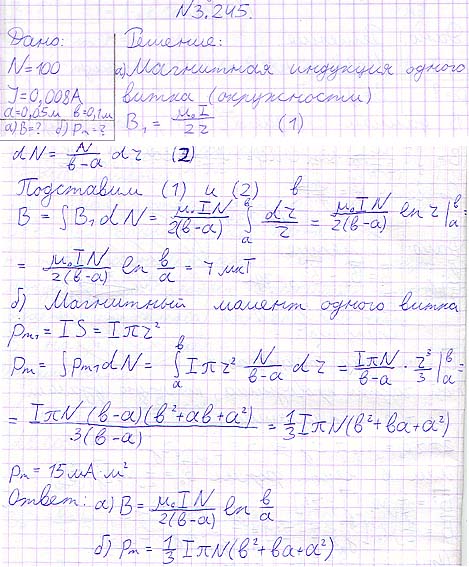 N3.245.
Дано:
N=100
J=0,008А
a=0,05м b=0,1м
а) B=? б) Pm=?
Решение:
а) Магнитная индукция одного
витка (окружности)
B₁ = μ₀I/2r (1)
dN = N/(b-a) dr (2)
Подставим (1) и (2) в
B = ∫B₁dN = μ₀IN/2(b-a) ∫ₐᵇ dr/r = μ₀IN/2(b-a) ln r|ₐᵇ =
= μ₀IN/2(b-a) ln b/a = 7 мкТ
б) Магнитный момент одного витка
pm₁ = IS = Iπr²
pm = ∫pm₁dN = ∫ₐᵇ Iπr² N/(b-a) dr = IπN/(b-a) · r³/3|ₐᵇ =
= IπN(b-a)(b²+ab+a²)/3(b-a) = 1/3 IπN(b²+ba+a²)
pm = 15мА·м²
Ответ: а) B = μ₀IN/2(b-a) ln b/a
б) pm = 1/3 IπN(b²+ba+a²)